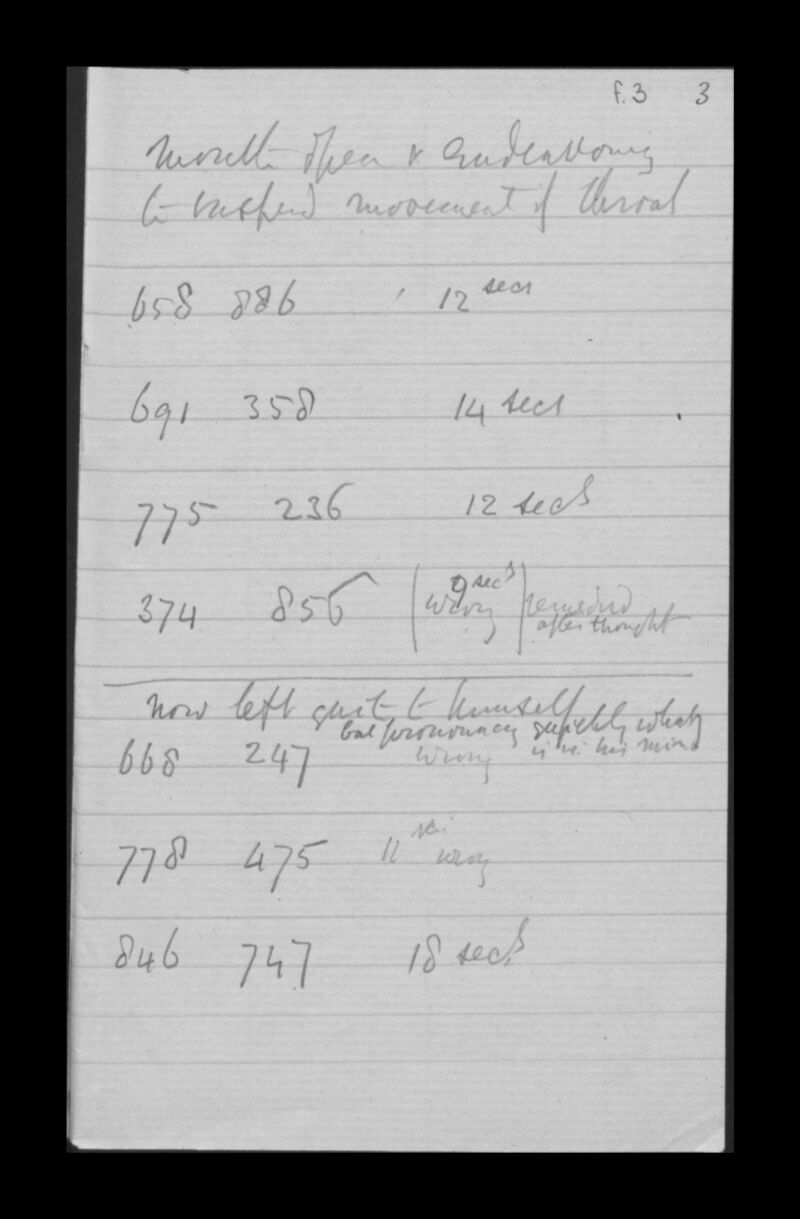 f.3 3
Mouth open & endeavouring
to suspend movement of throat
658 886 12 secs
691 358 14 secs
775 236 12 secs
374 856 (9 secs wrong) remedied
after thought
now left quite to himself
but pronouncing silently what
is in his mind
668 247 wrong
778 475 11 secs wrong
846 747 18 secs